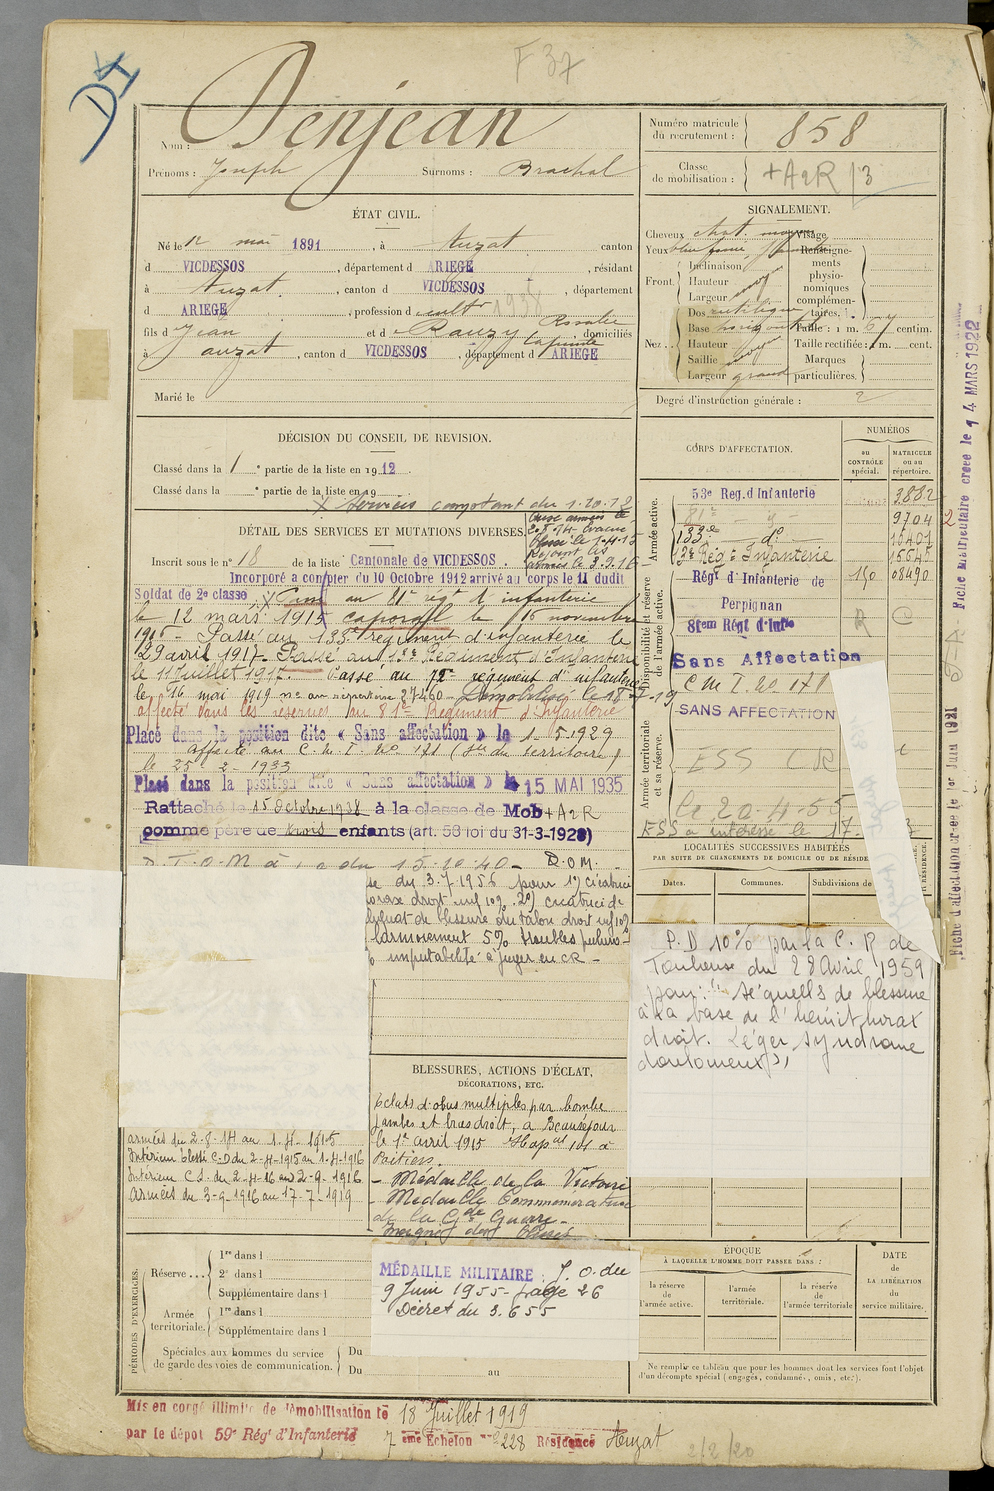 F 37
Nom : Denjean
Prénoms : Joseph Surnoms : Brachal
Numéro matricule du recrutement : 858
Classe de mobilisation : +A2R /3
ÉTAT CIVIL.
Né le 12 mai 1891, à Auzat canton
d VICDESSOS, département d ARIEGE, résidant
à Auzat, canton d VICDESSOS, département
d ARIEGE, profession d cultr 1938
fils d Jean et d Rauzy Rosalie domiciliés
à auzat, canton d VICDESSOS, département d ARIEGE
Marié le
SIGNALEMENT.
Cheveux chat. moyen Visage
Yeux
Front. Inclinaison
Hauteur
Largeur moyen
Renseignements physionomiques complémentaires.
Nez.. Dos rectiligne
Base horizontale Taille : 1 m. 67 centim.
Hauteur Taille rectifiée : 1m. cent.
Saillie moyen
Largeur grand
Marques particulières.
Degré d'instruction générale : 2
DÉCISION DU CONSEIL DE REVISION.
Classé dans la 1re partie de la liste en 1912.
Classé dans la e partie de la liste en 19
X Services comptant du 1.10.12
DÉTAIL DES SERVICES ET MUTATIONS DIVERSES.
Inscrit sous le n° 18 de la liste Cantonale de VICDESSOS.
Incorporé a compter du 10 Octobre 1912 arrivé au corps le 11 dudit
Soldat de 2e classe, X Passé au 81e régt d'infanterie
le 12 mars 1915 caporal le 15 novembre
1916 - Passé au 133e régiment d'infanterie le
29 avril 1917. Passé au 12e Régiment d'Infanterie
le 11 juillet 1917. Passé au 72e régiment d'infanterie
le 16 mai 1919 no au répertoire 27460 - Démobilisé le 18-7-19
affecté dans les réserves au 81e Régiment d'Infanterie
Placé dans la position dite « Sans affectation » le 1.5.1929
Affecté au C.M.I. no 171 (Sce du territoire)
le 25-2-1933
Placé dans la position dite « Sans affectation » le 15 MAI 1935
Rattaché le 15 Octobre 1938 à la classe de Mob +A2R
comme père de trois enfants (art. 58 loi du 31-3-1928)
D.T.O.M du 15.10.40 - D.O.M.
du 3.7.1956 pour 1) cicatrice
thorax droit inf 10%. 2°) cicatrice
de blessure du talon droit inf 10%
larmoiement 5% troubles
% imputabilité à juger en CR -
armées du 2.8.14 au 1.4.1915
Intérieur blessé C.D du 2-4-1915 au 1-4-1916
Intérieur C S. du 2-4-16 au 2-9-1916
Armées du 3-9-1916 au 17-7-1919
BLESSURES, ACTIONS D'ÉCLAT,
DÉCORATIONS, ETC.
Eclats d'obus multiples par bombe
jambes et bras droit, à Beauséjour
le 1er avril 1915 Hopal 101 à
Poitiers.
- Médaille de la Victoire
- Médaille Commémorative
de la Gde Guerre -
- Insigne des Blessés
MÉDAILLE MILITAIRE : J.O. du
9 Juin 1955 - page 26
Décret du 3.6.55
CORPS D'AFFECTATION.
NUMÉROS
au CONTRÔLE spécial.
MATRICULE ou au répertoire.
Armée active.
53e Reg. d Infanterie 3882
81e — d° — 9704
133e — d° — 15401
12e Rég. Infanterie 15645
Disponibilité et réserve de l'armée active.
Régt d'Infanterie de Perpignan 150 08490
81em Régt d'Infie R C
Sans Affectation
Armée territoriale et sa réserve.
C M I. No 171
SANS AFFECTATION
ESS CR
le 20-4-55
ESS a intéressé le 17-
LOCALITÉS SUCCESSIVES HABITÉES
PAR SUITE DE CHANGEMENTS DE DOMICILE OU DE RÉSIDE
Dates. Communes. Subdivisions de
P.D 10% par la C. R de
Toulouse du 28 Avril 1959
pour : "séquelles de blessure
à la base de l'hémithorax
droit. Léger syndrome
douloureux",
PÉRIODES D'EXERCICES.
Réserve... 1re dans l
2e dans l
Supplémentaire dans l
Armée territoriale. 1re dans l
Supplémentaire dans l
Spéciales aux hommes du service de garde des voies de communication. Du
Du au
ÉPOQUE
À LAQUELLE L'HOMME DOIT PASSER DANS :
la réserve de l'armée active.
l'armée territoriale.
la réserve de l'armée territoriale
DATE DE LA LIBÉRATION du service militaire.
Ne remplir ce tableau que pour les hommes dont les services font l'objet
d'un décompte spécial (engagés, condamnés, omis, etc.).
Mis en congé illimité de démobilisation le 18 Juillet 1919
par le dépot 59e Régt d'Infanterie 7 ème Echelon no 228 Résidence Auzat
2/2/20
Fiche Matriculaire créée le 14 MARS 1922
Fiche d'affectation créée le 1er Juin 1921